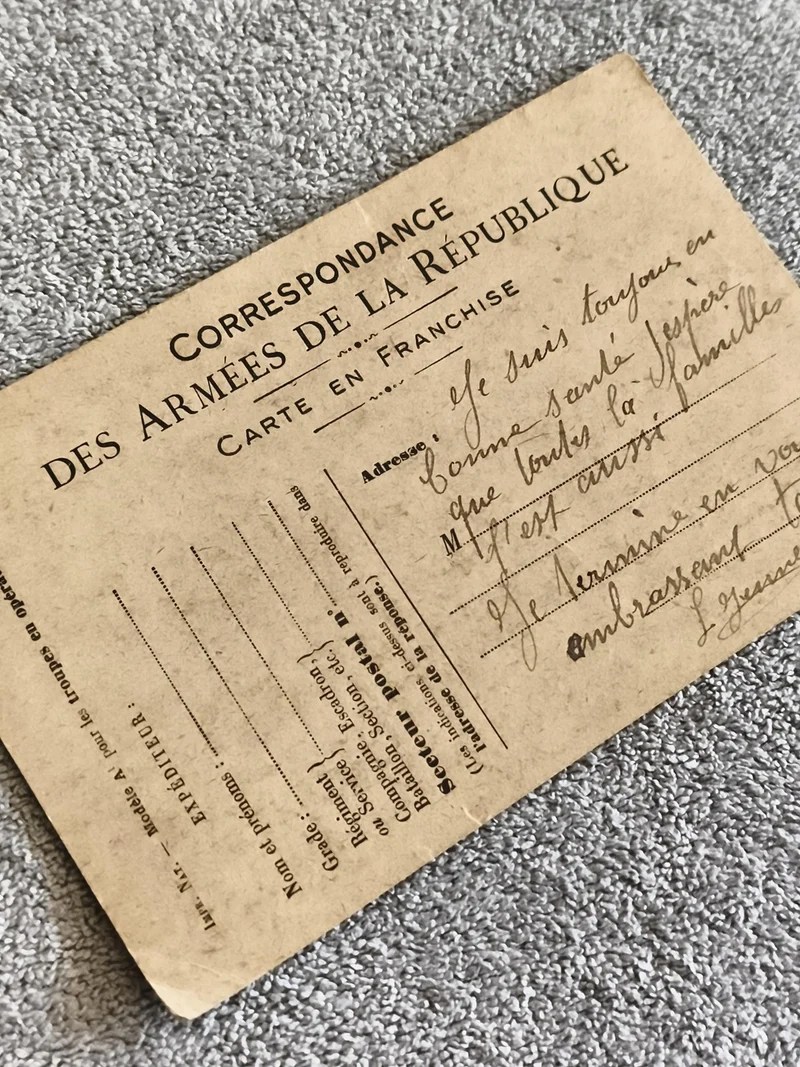 CORRESPONDANCE
DES ARMÉES DE LA RÉPUBLIQUE
CARTE EN FRANCHISE
Adresse :
M
Je suis toujours en
bonne santé j'espère
que toutes la familles
l'est aussi
Je termine en vou
embrassant
Impr. Nat. — Modèle A pour les troupes en opéra
EXPÉDITEUR :
Nom et prénoms :
Grade :
Régiment
ou Service
Compagnie, Escadron,
Bataillon, Section, etc.
Secteur postal n°
(Les indications ci-dessus sont à reproduire dans
l'adresse de la réponse.)